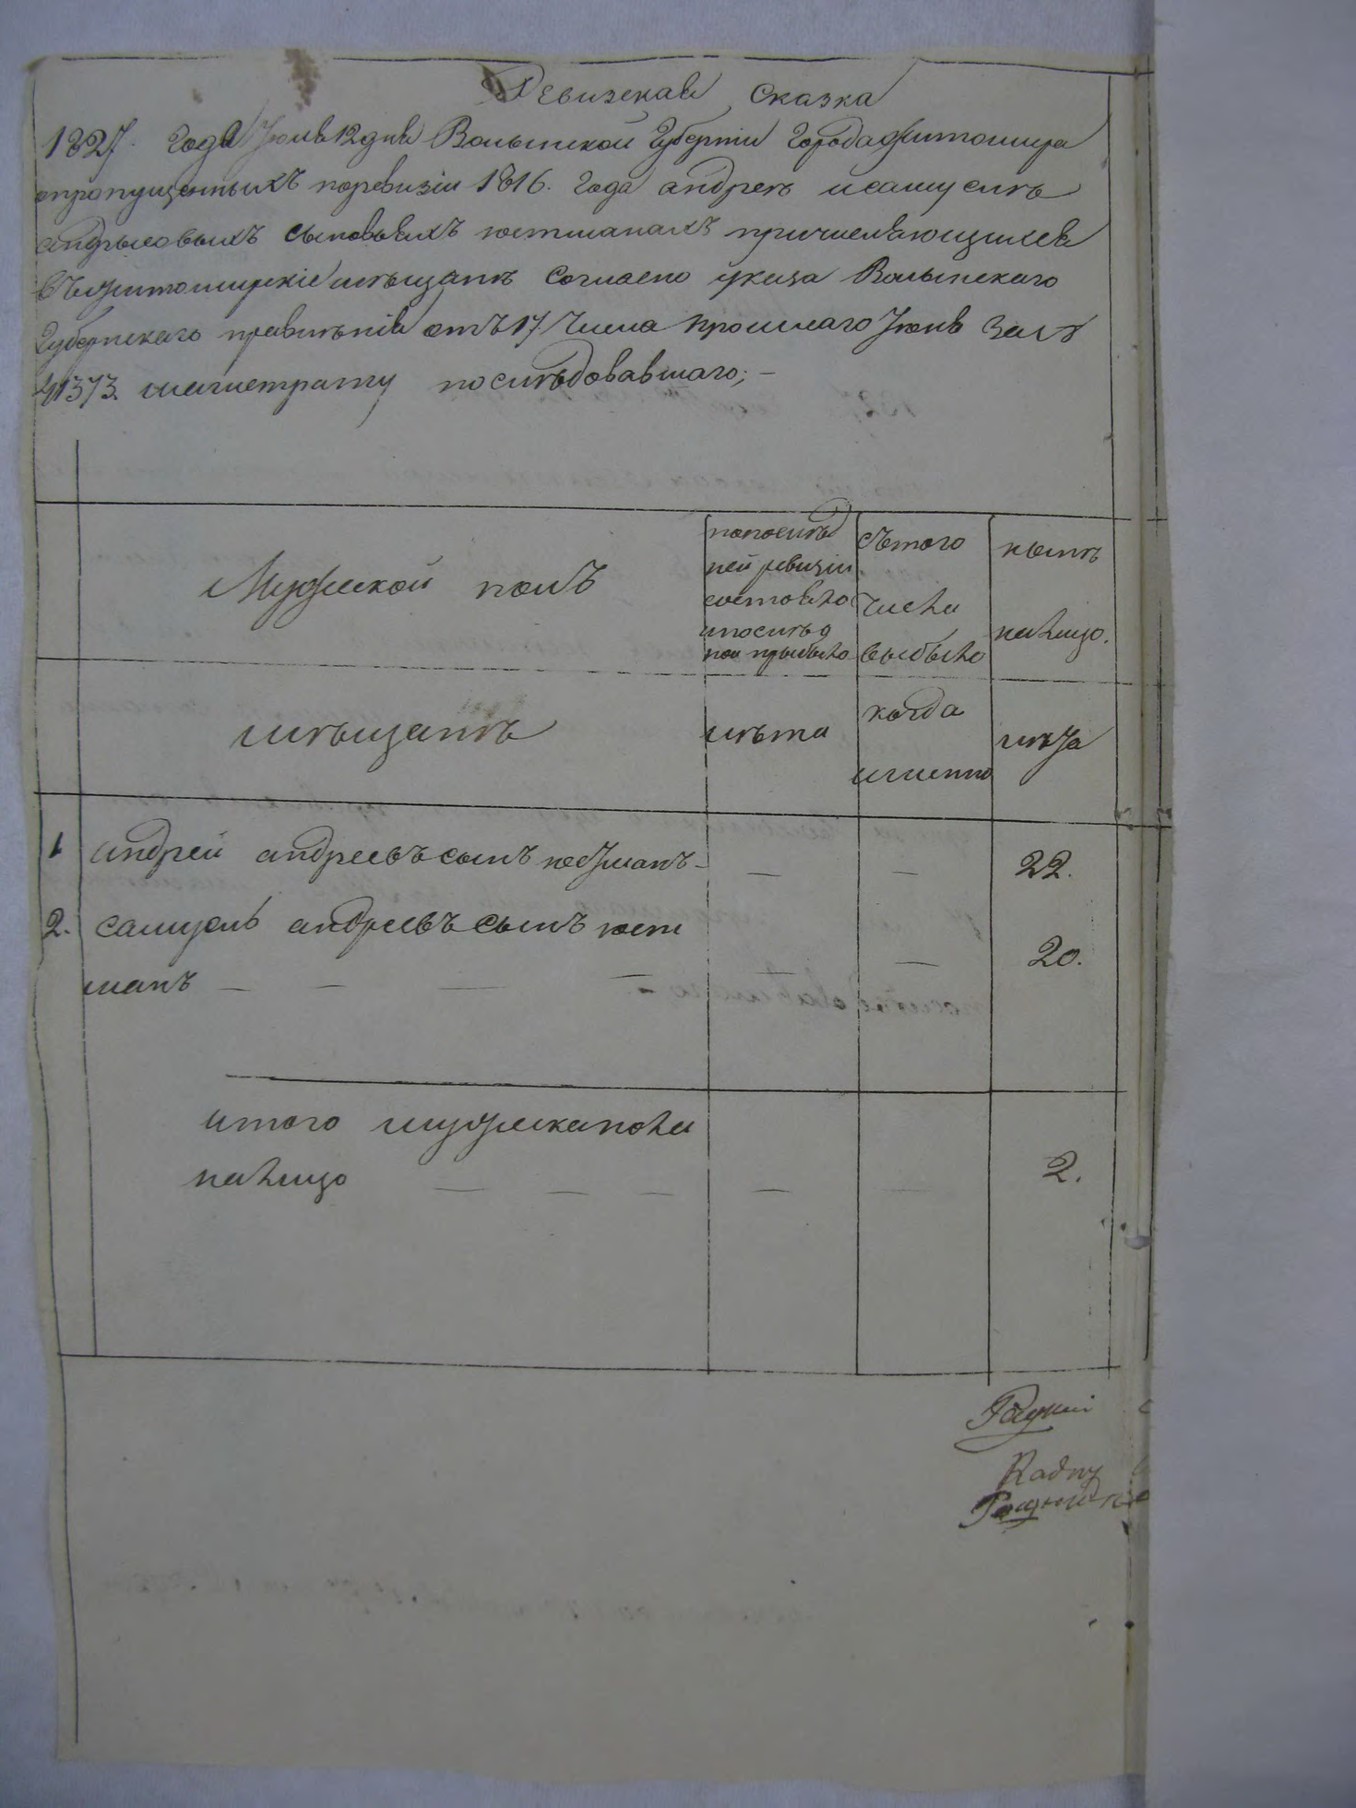 Ревизская сказка
1827. года Июля 12 дня Волынской Губернии Города Житомира
опропущенныхъ поревизіи 1816. года андреѣ исамуелѣ
андрыевыхъ сыновьяхъ юстманахъ причисляющихся
въжитомирскіе мѣщанѣ Согласно указа Волынскаго
Губернскаго правленія отъ 17 числа прошлаго Іюня За №
41373. магистрату послѣдовавшаго; —
Мужеской полъ
попослѣд
ней ревизіи
состояло
ипослѣд
нои прыбыло
съ того
числа
выбыло
нынѣ
налицо.
мѣщанѣ
лѣта
когда
именно
лѣта
1 андрей андреевъ сынъ юстманъ — — — 22.
2. самуель андреевъ сынъ юст
манъ — — — — — — 20.
итого мужеска пола
налицо — — — — — 2.
Радный
Radny